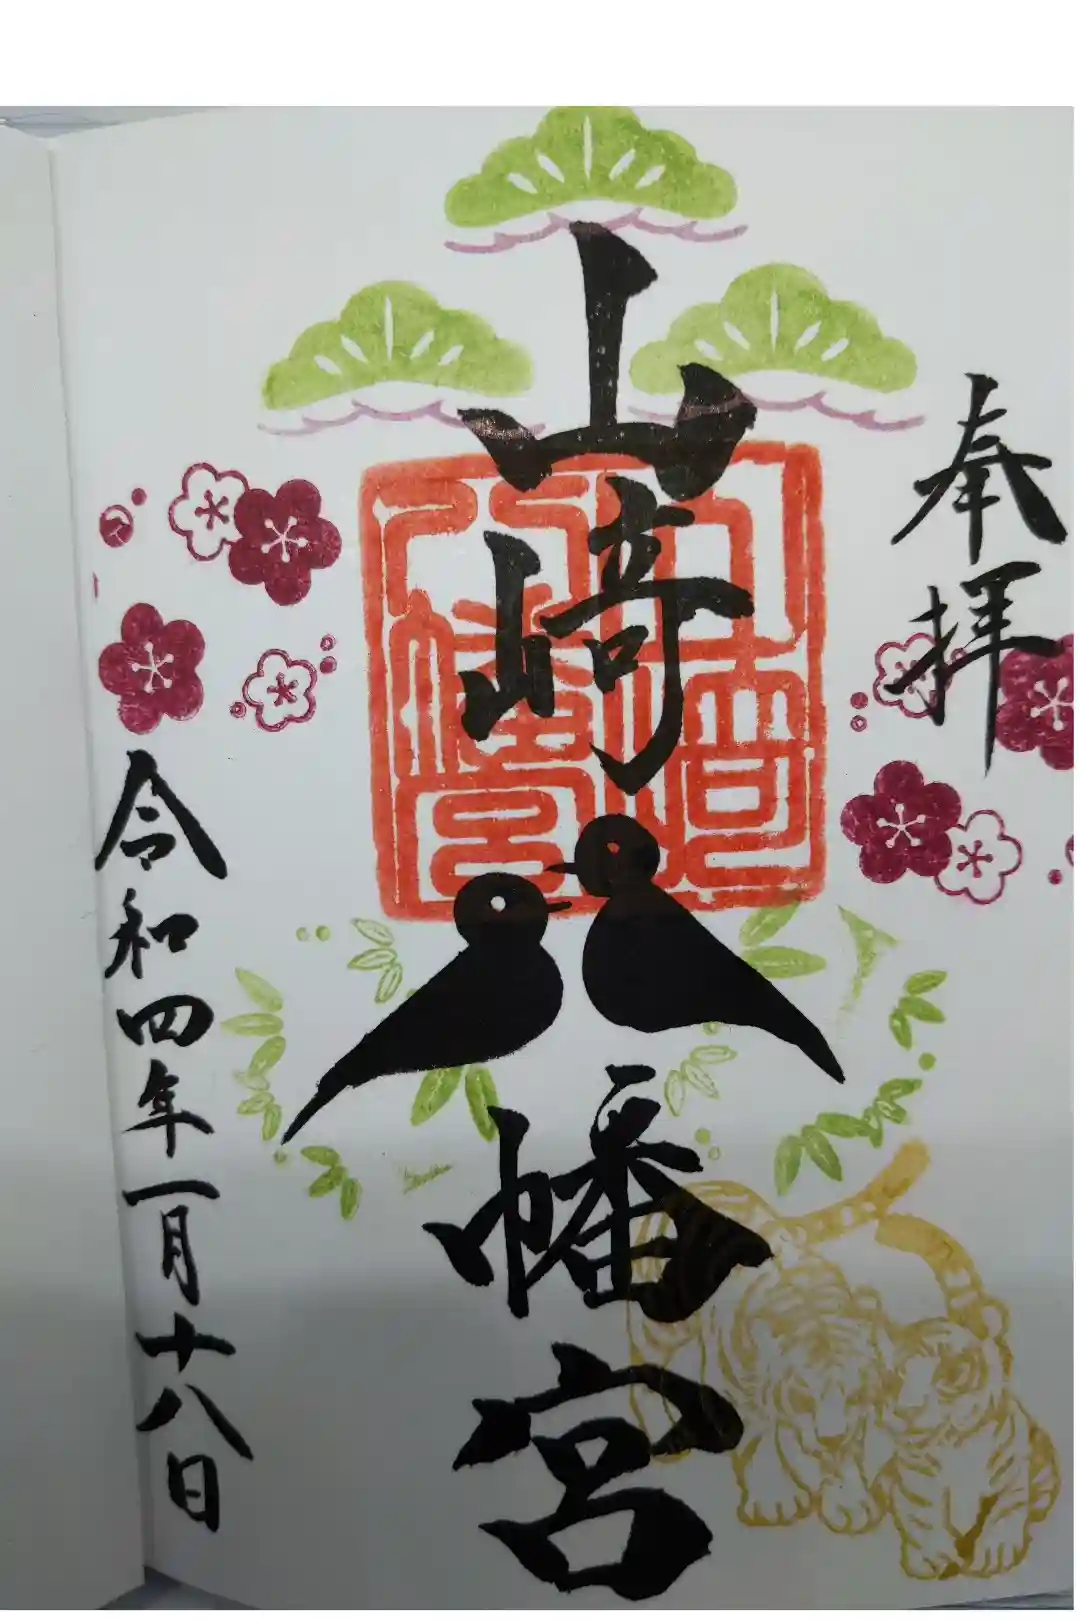 奉拝
山崎
八幡宮
山崎八幡宮
令和四年一月十八日